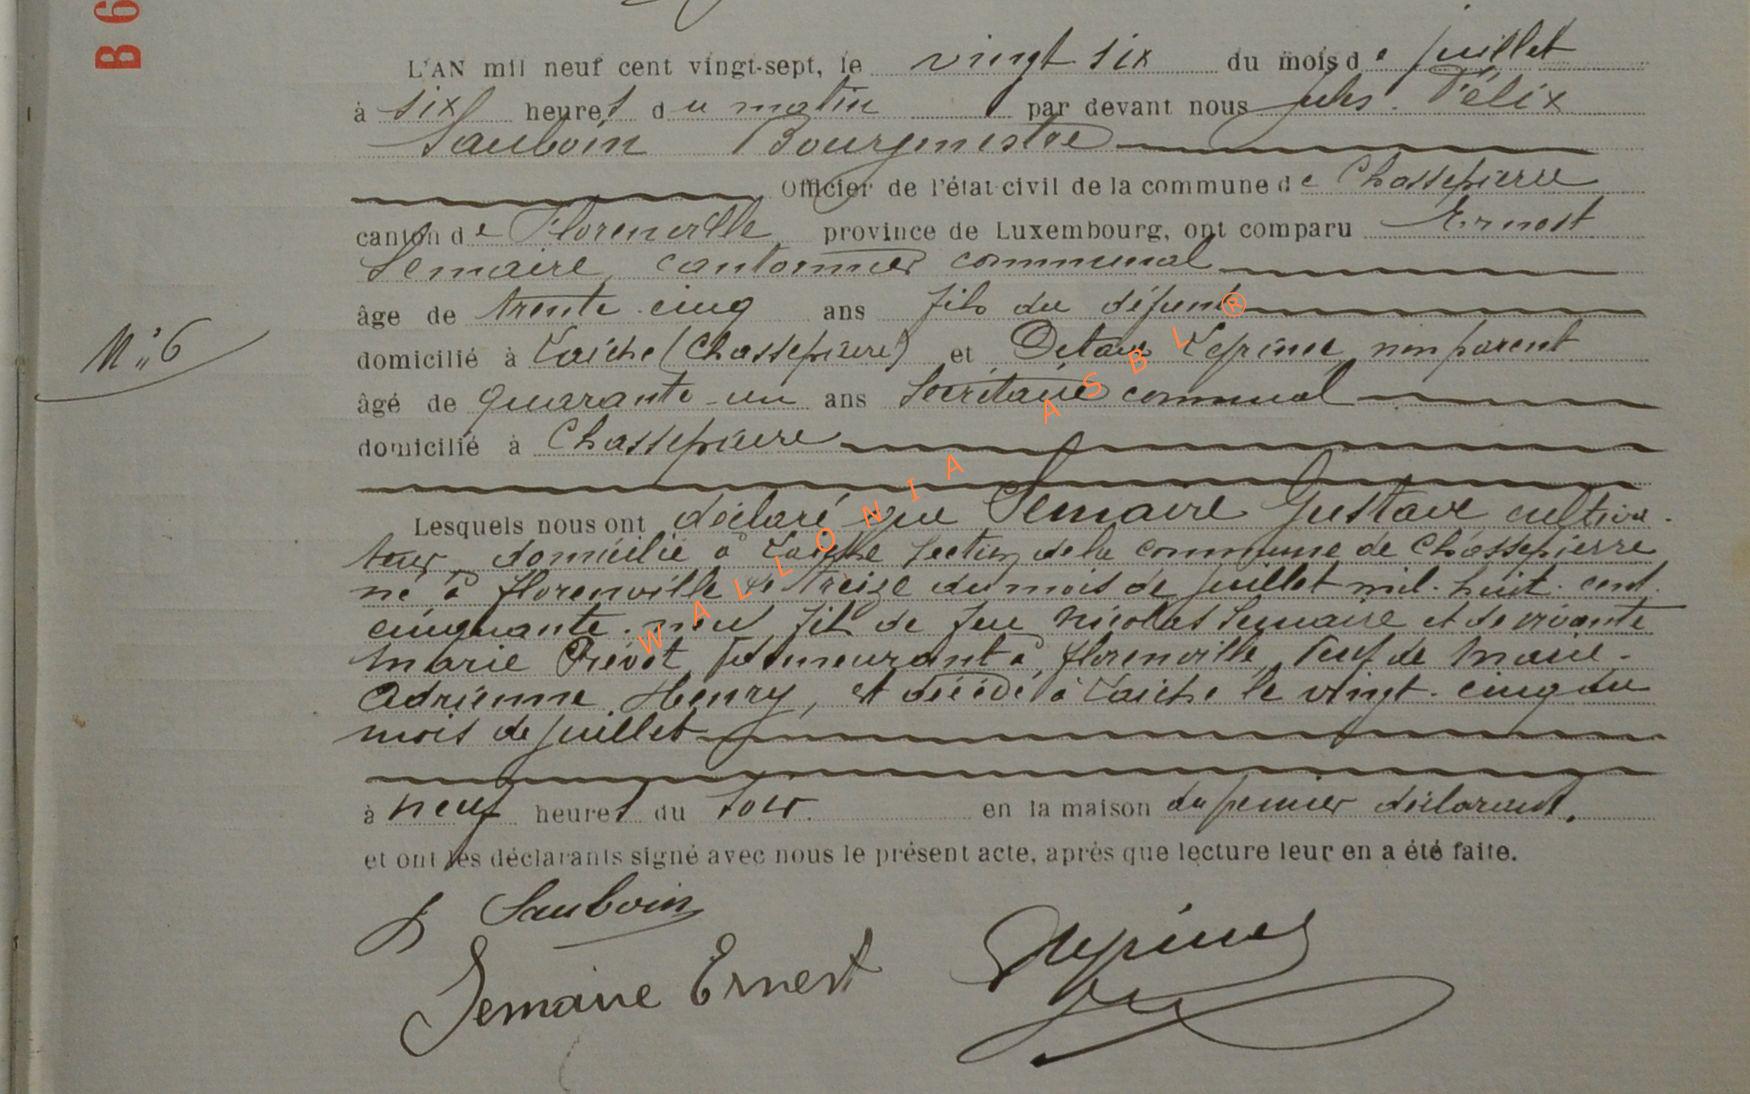 B 6
L'AN mil neuf cent vingt-sept, le vingt six du mois de juillet
à six heures du matin par devant nous Jules Félix
Sauboin Bourgmestre
Officier de l'état civil de la commune de Chassepierre
canton de Florenville province de Luxembourg, ont comparu Ernest
Lemaire, cantonnier communal
âge de trente cinq ans fils du défunt
N° 6
domicilié à Laiche (Chassepierre) et Octave Lepine non parent
âgé de quarante-un ans Secrétaire communal
domicilié à Chassepierre
Lesquels nous ont déclaré que Lemaire Gustave cultiva-
teur domicilié à Laiche section de la commune de Chassepierre
né à Florenville le treize du mois de juillet mil-huit-cent-
cinquante-neuf fils de feu Nicolas Lemaire et de vivante
Marie Prévot demeurant à Florenville, veuf de Marie-
Adrienne Henry, est décédé à Laiche le vingt-cinq du
mois de juillet
à neuf heures du soir. en la maison du premier déclarant.
et ont les déclarants signé avec nous le présent acte, après que lecture leur en a été faite.
J Sauboin
Lemaire Ernest
WALLONIA ASBL ®